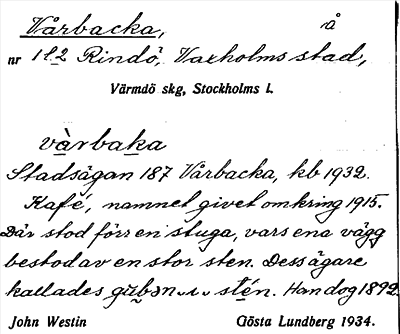 Vårbacka, å
nr 1 l. 2 Rindö, Vaxholms stad,
Värmdö skg, Stockholms l.
vàrbaka
Stadsägan 187 Vårbacka, kb 1932.
Kafé, namnet givet omkring 1915.
Där stod förr en stuga, vars ena vägg
bestod av en stor sten. Dess ägare
kallades stén. Han dog 1892.
John Westin Gösta Lundberg 1934.